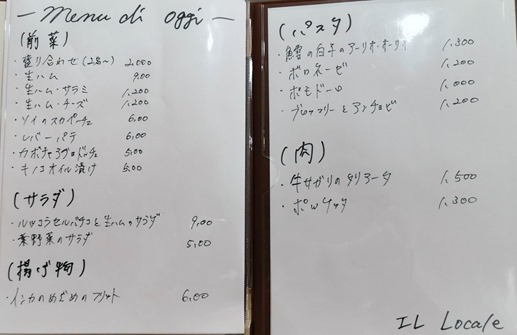 — Menu di oggi —
(前菜)
・盛り合わせ(2名〜) 2,000
・生ハム 900
・生ハム・サラミ 1,200
・生ハム・チーズ 1,200
・ソイのスカペーチェ 600
・レバーパテ 600
・カボチャアグロドルチェ 500
・キノコオイル漬け 500
(サラダ)
・ルッコラセルバチコと生ハムのサラダ 900
・葉野菜のサラダ 500
(揚げ物)
・インカのめざめのフリット 600
(パスタ)
・鱈の白子のアーリオ・オーリオ 1,300
・ボロネーゼ 1,200
・ポモドーロ 1,000
・ブロッコリーとアンチョビ 1,200
(肉)
・牛サガリのタリアータ 1,500
・ポルケッタ 1,300
IL Locale